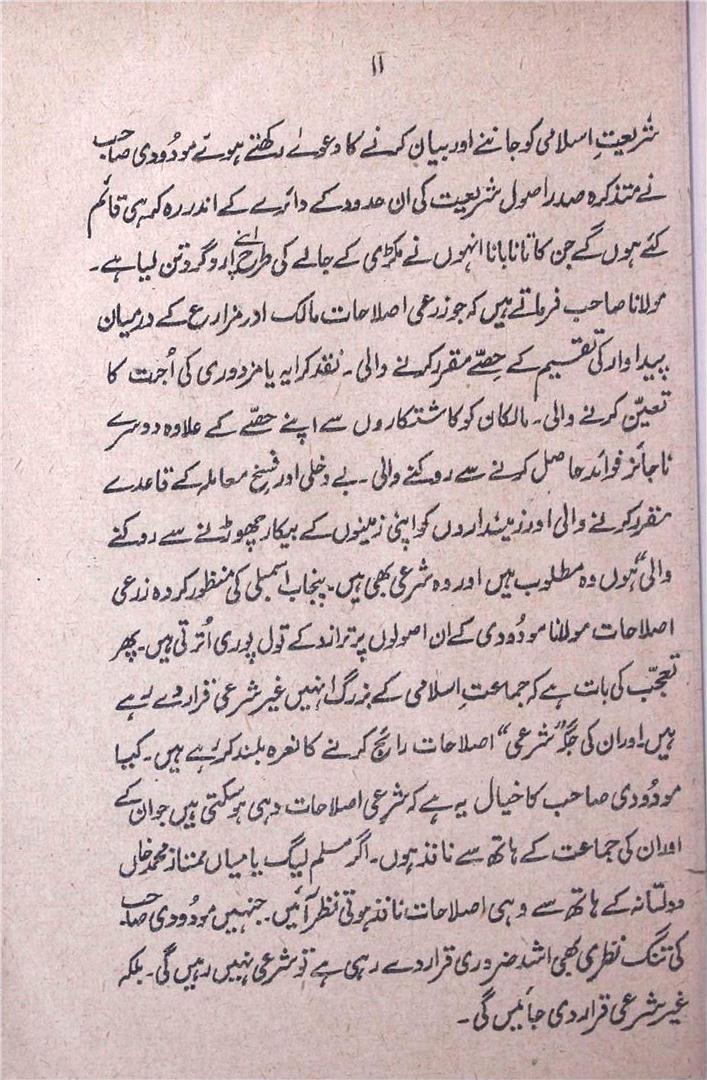 ۱۱
شریعتِ اسلامی کو جاننے اور بیان کرنے کا دعوےٰ رکھتے ہوئے مودُودی صاحب
نے متذکرہ صدر اصول شریعت کی ان حدود کے دائرے کے اندر رہ کر ہی قائم
کئے ہوں گے جن کا تانا بانا انہوں نے مکڑی کے جالے کی طرح اپنے اردگرد تن لیا ہے۔
مولانا صاحب فرماتے ہیں کہ جو زرعی اصلاحات مالک اور مزارع کے درمیان
پیداوار کی تقسیم کے حِصّے مقرر کرنے والی۔ نقد کرایہ یا مزدوری کی اُجرت کا
تعیّن کرنے والی۔ مالکان کو کاشتکاروں سے اپنے حصّے کے علاوہ دوسرے
ناجائز فوائد حاصل کرنے سے روکنے والی۔ بے دخلی اور فسخ معاملہ کے قاعدے
مقرر کرنے والی اور زمینداروں کو اپنی زمینوں کے بیکار چھوڑنے سے روکنے
والی" ہوں وہ مطلوب ہیں اور وہ شرعی بھی ہیں۔ پنجاب اسمبلی کی منظور کردہ زرعی
اصلاحات مولانا مودُودی کے ان اصولوں پر ترازو کے تول پوری اُترتی ہیں۔ پھر
تعجّب کی بات ہے کہ جماعتِ اسلامی کے بزرگ انہیں غیر شرعی قرار دے رہے
ہیں۔ اور ان کی جگہ "شرعی" اصلاحات رائج کرنے کا نعرہ بلند کر رہے ہیں۔ کیا
مودُودی صاحب کا خیال یہ ہے کہ شرعی اصلاحات وہی ہو سکتی ہیں جو ان کے
اور ان کی جماعت کے ہاتھ سے نافذ ہوں۔ اگر مسلم لیگ یا میاں ممتاز محمد خاں
دولتانہ کے ہاتھ سے وہی اصلاحات نافذ ہوتی نظر آئیں۔ جنہیں مودُودی صاحب
کی تنگ نظری بھی اشد ضروری قرار دے رہی ہے تو شرعی نہیں رہیں گی۔ بلکہ
غیر شرعی قرار دی جائیں گی۔